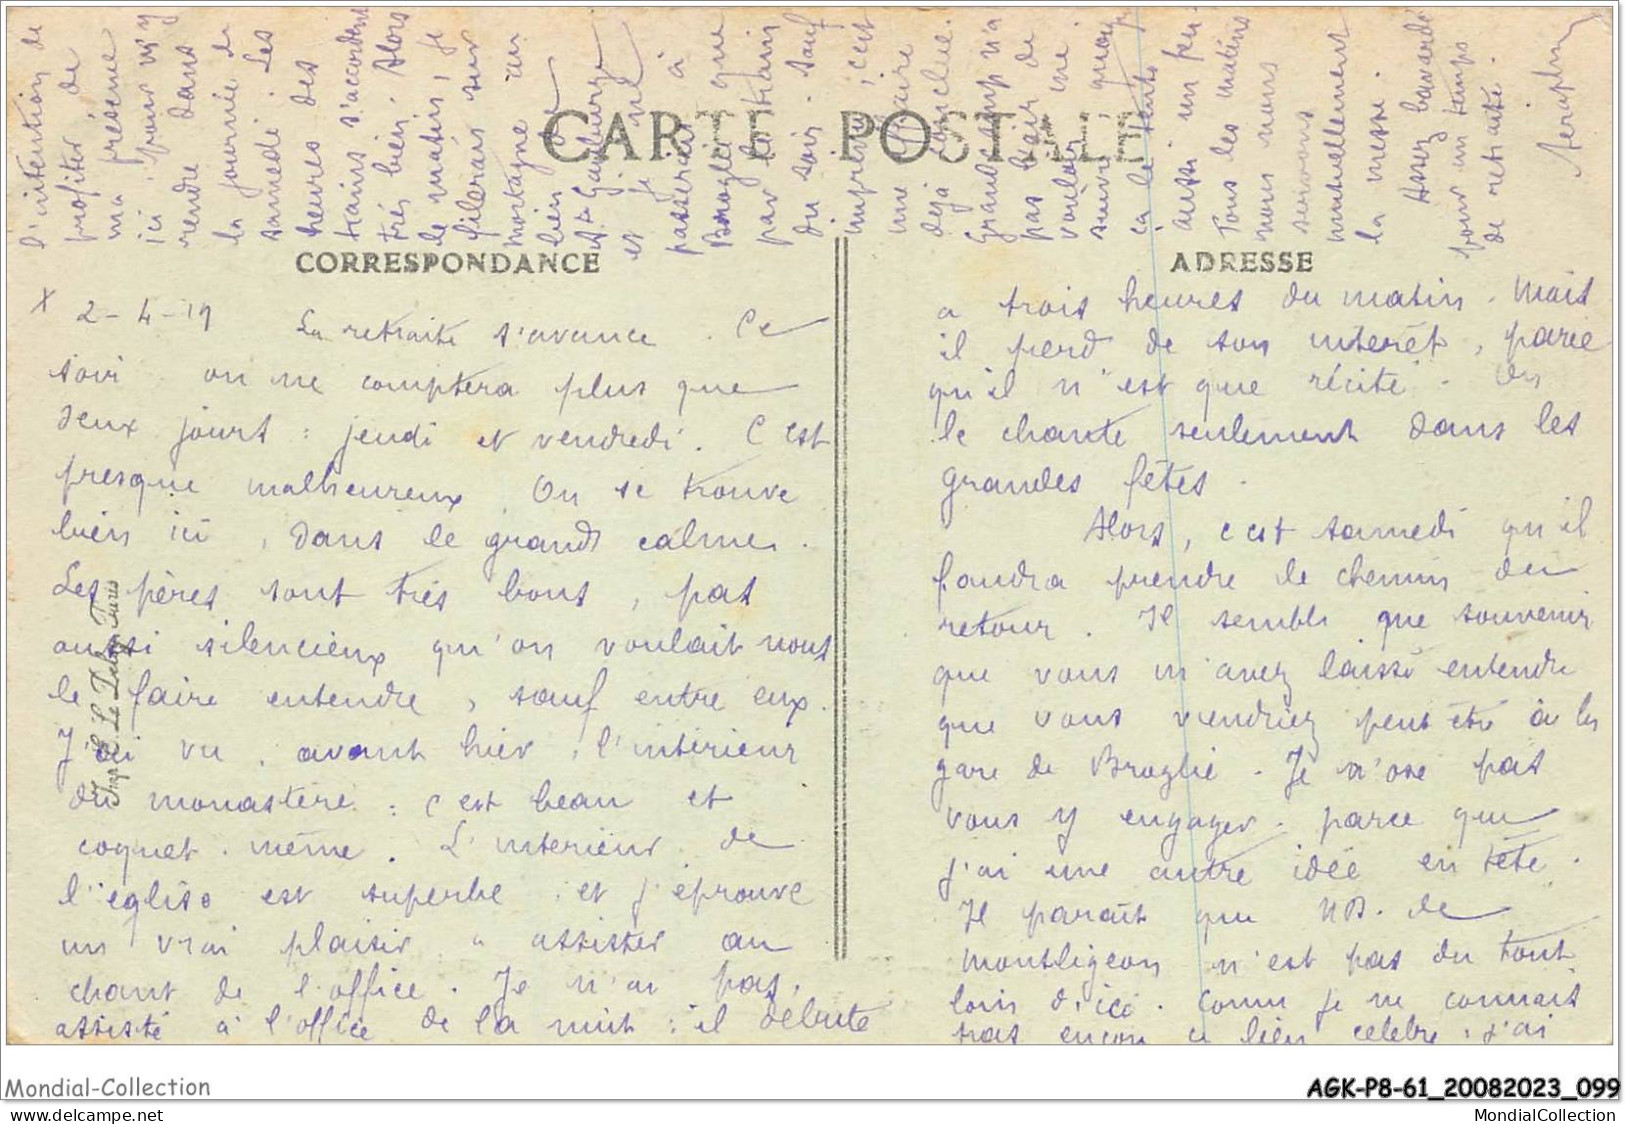 CARTE POSTALE
CORRESPONDANCE
ADRESSE
x 2-4-19 La retraite s'avance. Ce
soir on ne comptera plus que
deux jours : jeudi et vendredi. C'est
presque malheureux. On se trouve
bien ici, dans le grand calme.
Les pères sont très bons, pas
aussi silencieux qu'on voulait nous
le faire entendre, sauf entre eux.
J'ai vu, avant hier, l'intérieur
du monastère : c'est beau et
coquet même. L'intérieur de
l'église est superbe et j'éprouve
un vrai plaisir a assister au
chant de l'office. Je n'ai pas
assisté à l'office de la nuit : il débute
a trois heures du matin. Mais
il perd de son intérêt, parce
qu'il n'est que récité. On
le chante seulement dans les
grandes fêtes.
Alors, c'est samedi qu'il
faudra prendre le chemin du
retour. Il semble que souvenir
que vous m'avez laissé entendre
que vous viendriez peut être à la
gare de Broglie. Je n'ose pas
vous y engager parce que
j'ai une autre idée en tête.
Il paraît que N.D. de
Montligeon n'est pas du tout
loin d'ici. Comme je ne connais
pas encore ce lieu célèbre, j'ai
l'intention de
profiter de
ma présence
ici pour m'y
rendre dans
la journée de
samedi. Les
heures des
trains s'accordent
très bien. Alors
le matin, je
filerais sur
Mortagne ou
bien
et
et je ne
passerais à
Broglie que
par le train
du soir. Sauf
imprévu, c'est
une affaire
déjà conclue.
Grandcamp n'a
pas l'air de
vouloir me
suivre, quoique
ça le tente
aussi un peu.
Tous les matins
nous nous
servons
mutuellement
la messe.
Assez bavardé
pour un temps
de retraite.
Seraphin
Imp. E. Le Deley, Paris
Mondial-Collection
AGK-P8-61_20082023_099
MondialCollection